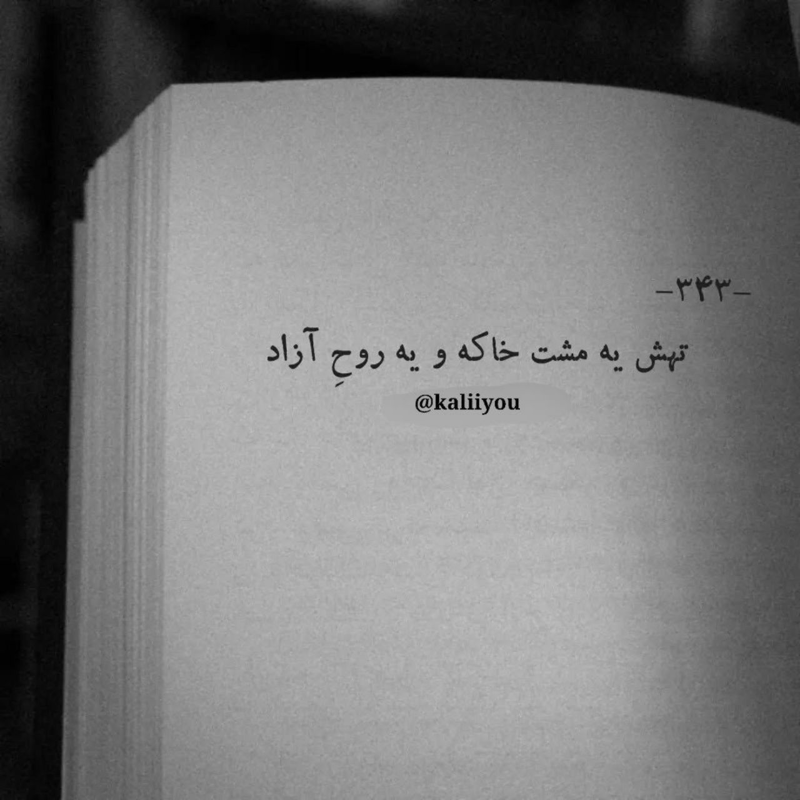 -۳۴۳-
تهش یه مشت خاکه و یه روحِ آزاد
@kaliiyou